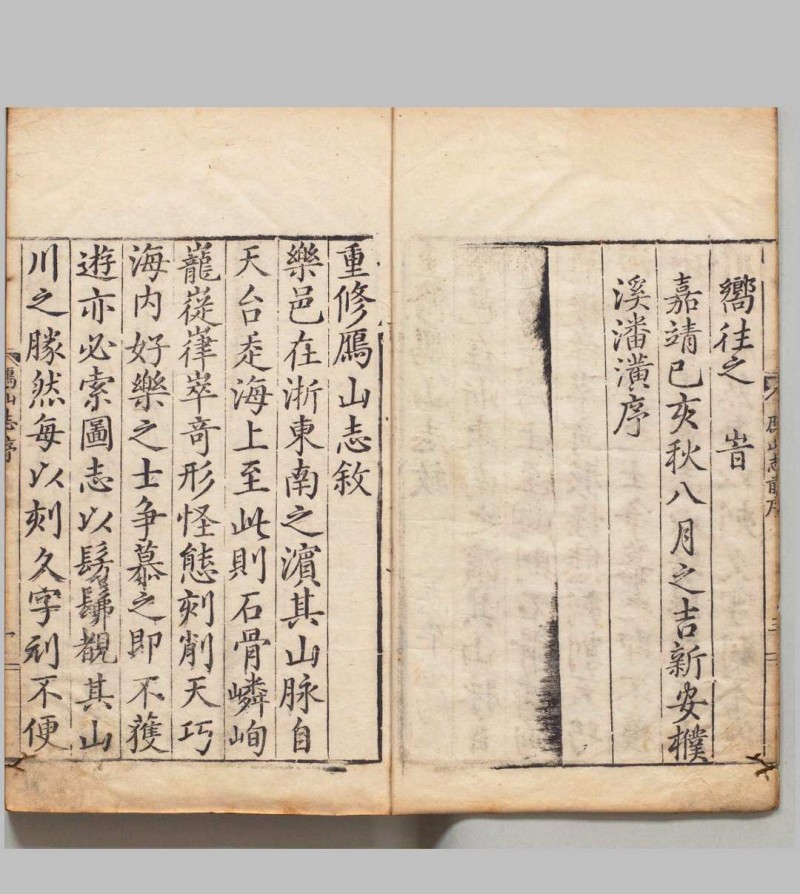 嚮往之 旹
嘉靖己亥秋八月之吉新安樸
溪潘潢序
重修鴈山志敘
樂邑在浙東南之濵其山脉自
天台走海上至此則石骨嶙峋
巃嵸嵂崒竒形怪態刻削天巧
海内好樂之士争慕之即不獲
遊亦必索圖志以髣髴覩其山
川之勝然每以刻久字刓不便
鴈山志序